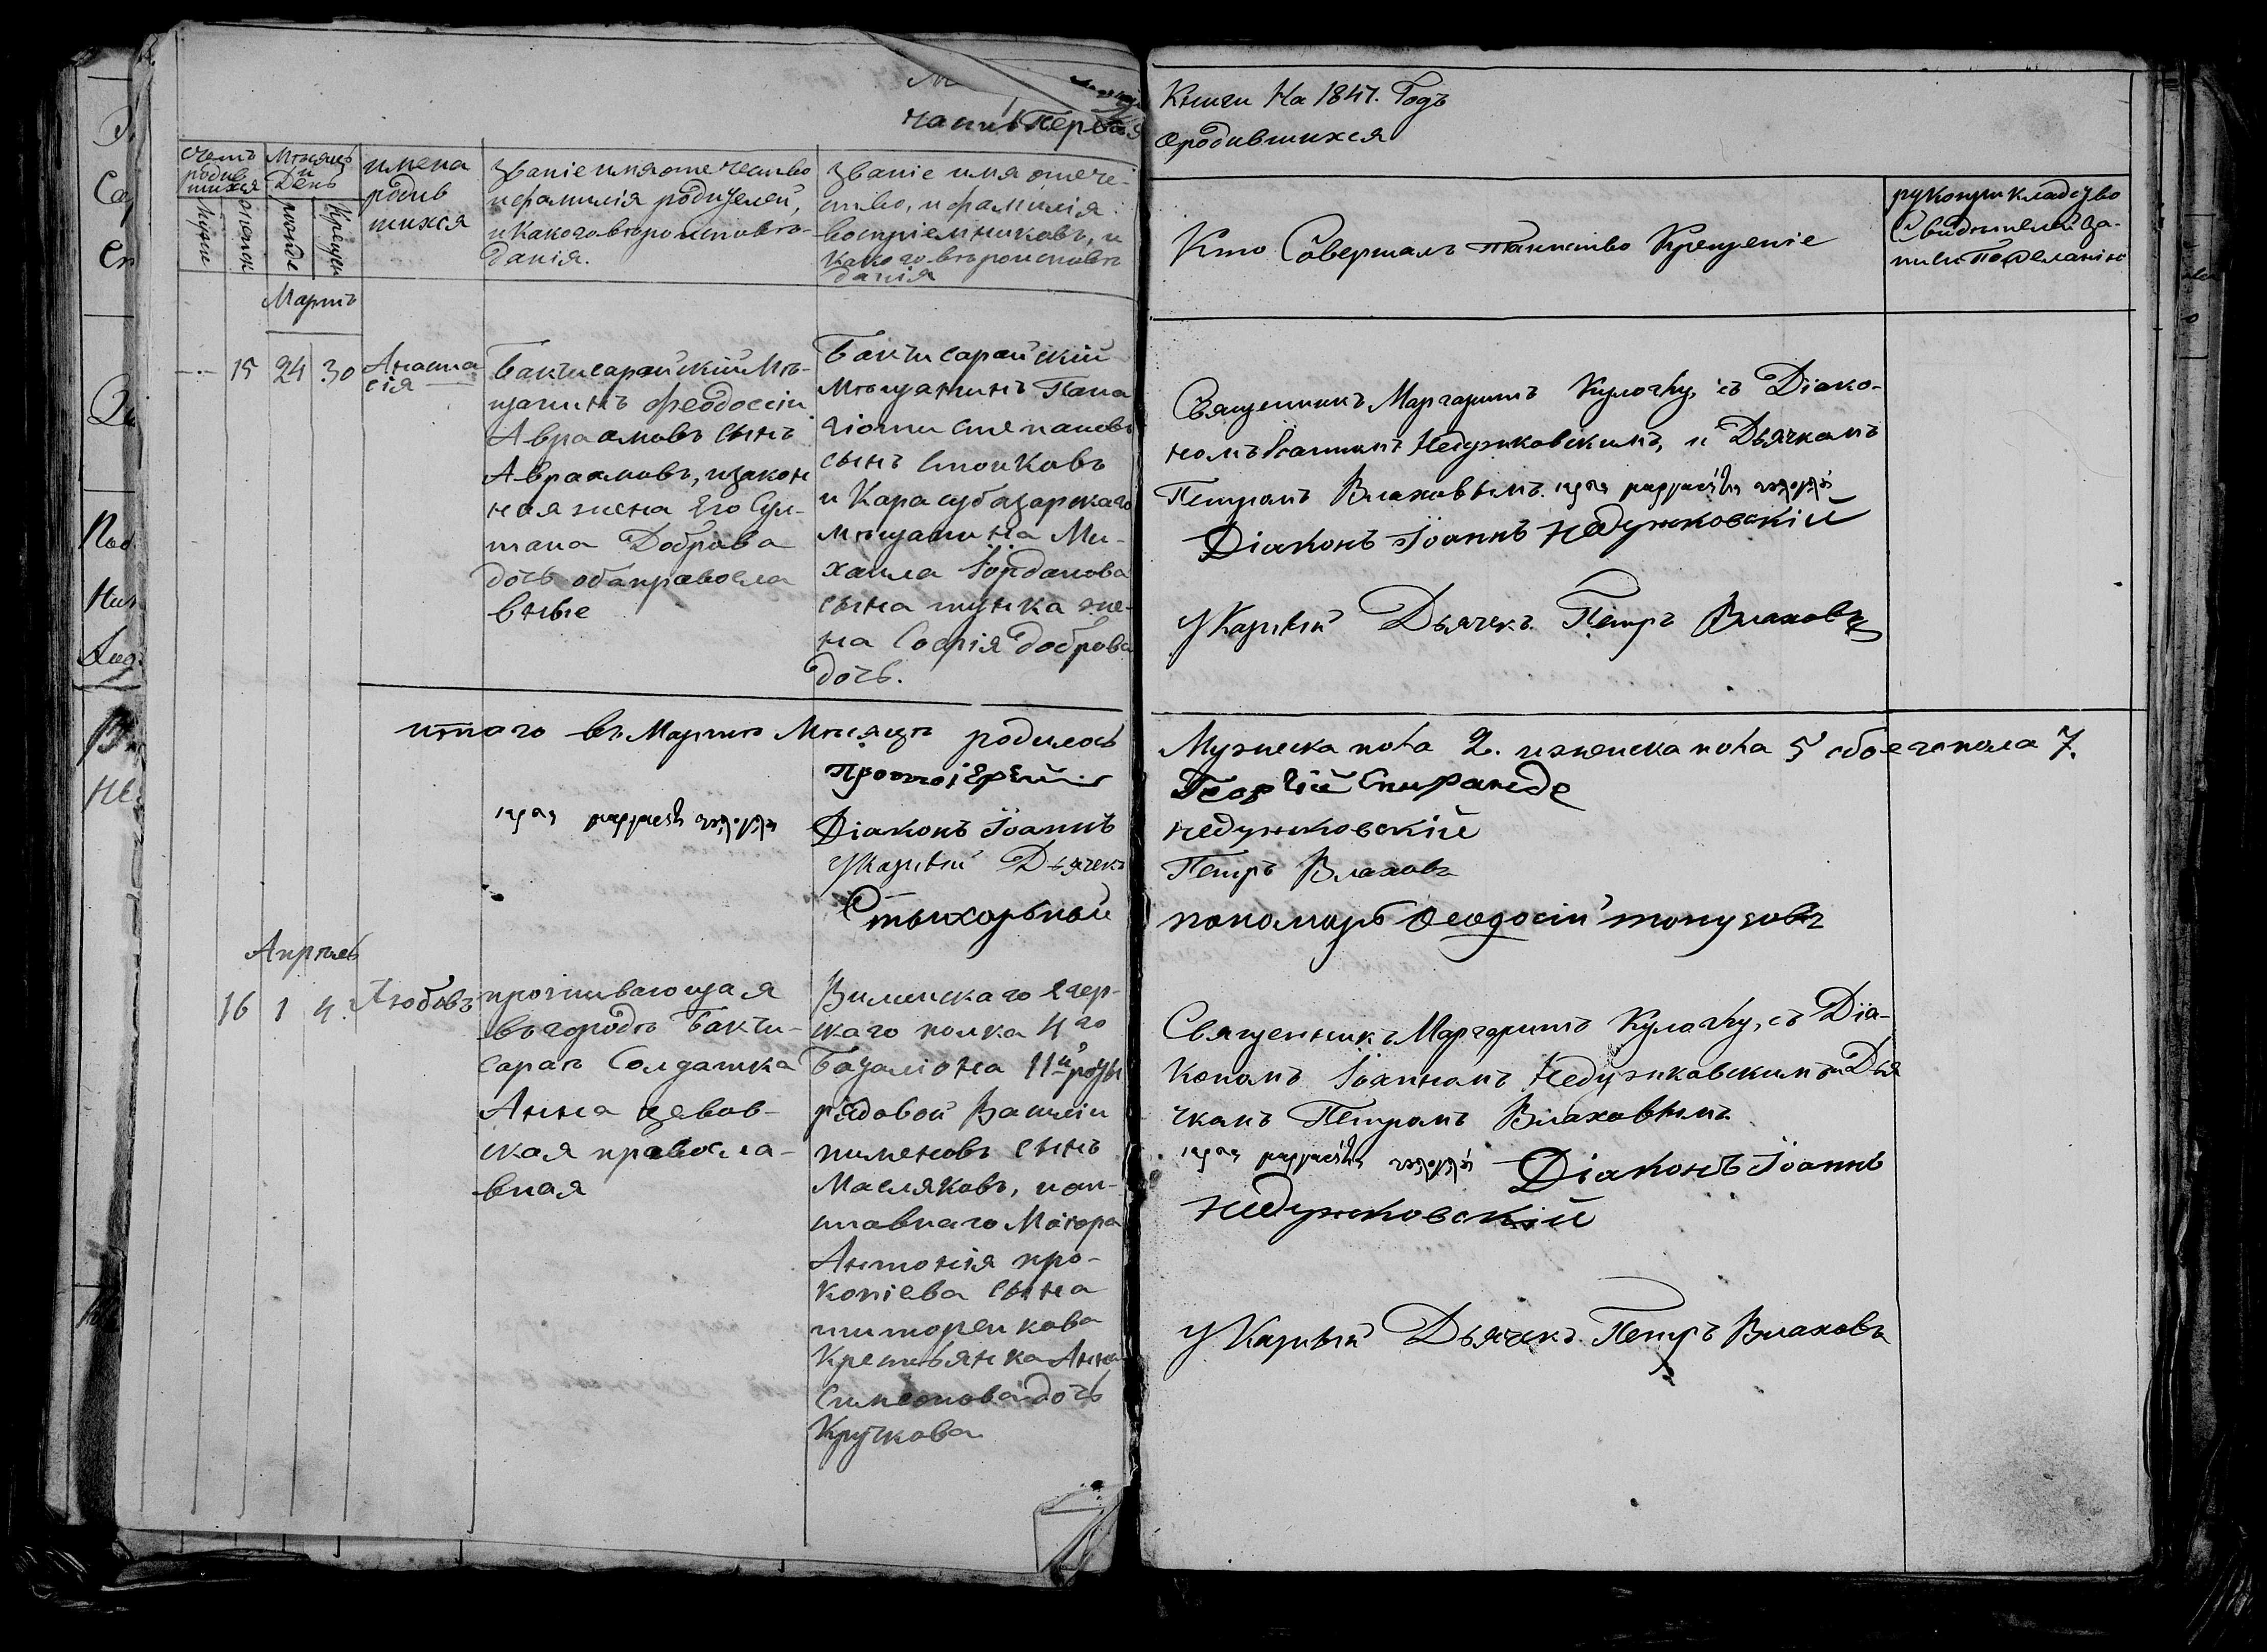 Книги На 1847. Годъ
часть Первая
о родившихся
счетъ родившихся
Мѣсяцъ и День
имена родив
шихся
Званіе имя отечество
и фамилія родителей,
и Какого вѣроисповѣ-
данія.
Званіе имя отече-
ство, и фамилія
воспріемниковъ, и
какого вѣроисповѣ
данія
Кто Совершалъ таинство Крещеніе
рукоприкладство
Свидѣтелей за-
писи По желанію
Мартъ
15 24 30
Анаста
сія
Бакчисарайскій Мѣ-
щанинъ Феодосій
Авраамовъ сынъ
Авраамовъ, и закон
ная жена Его Сул-
тана Доброва
дочь оба правосла
вные
Бакчисарайскій
Мѣщанинъ Пана
гіоти Степановъ
сынъ Стойковъ
и Карасубазарскаго
мѣщанина Ми-
хаила Іорданова
сына жена
Софія Доброва
дочь.
Священникъ Маргаритъ Кулочку, съ Діако-
номъ Іоанномъ Недужковскимъ, и Дьячкомъ
Петромъ Влаховымъ.
Діаконъ Іоаннъ Недужковскій
Указный Дьячекъ Петръ Влаховъ
итого въ Мартѣ Мѣсяцѣ родилось Мужеска пола 2. и женска пола 5 обоего пола 7.
Протоіерей Георгій Спиранде
Діаконъ Іоаннъ Недужковскій
Указный Дьячекъ Петръ Влаховъ
Стихорный пономарь Феодосій топузовъ
Апрѣль
16 1 4.
Любовь
проживающая
въ городѣ Бакчи-
сараѣ Солдатка
Анна
православная
Виленскаго Егер-
скаго полка 4го
Баталіона 11й роты
рядовой Василій
пименовъ сынъ
Масляковъ, и от-
ставнаго Маіора
Антонія про-
копіева сына
Крестьянка Анна
Симеонова дочь
Кручкова
Священникъ Маргаритъ Кулочку, съ Діа-
кономъ Іоанномъ Недужковскимъ и Дья
чкомъ Петромъ Влаховымъ.
Діаконъ Іоаннъ
Недужковскій
Указный Дьячекъ Петръ Влаховъ